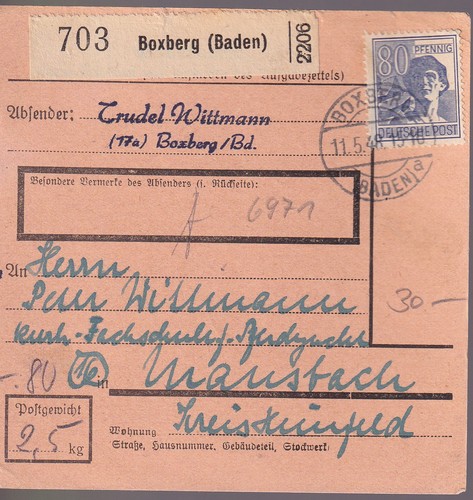 703 Boxberg (Baden) 2206
80 PFENNIG
DEUTSCHE POST
BOXBERG
11.5.48
(BADEN) a
des Aufgabezettels)
Absender: Trudel Wittmann
(17a) Boxberg/Bd.
Besondere Vermerke des Absenders (i. Rückseite):
6971
30-
An Herrn
Peter Wittmann
Mansbach
-.80 (16) in
Kreis Hünfeld
Postgewicht
2,5 kg
Wohnung
Straße, Hausnummer, Gebäudeteil, Stockwerk